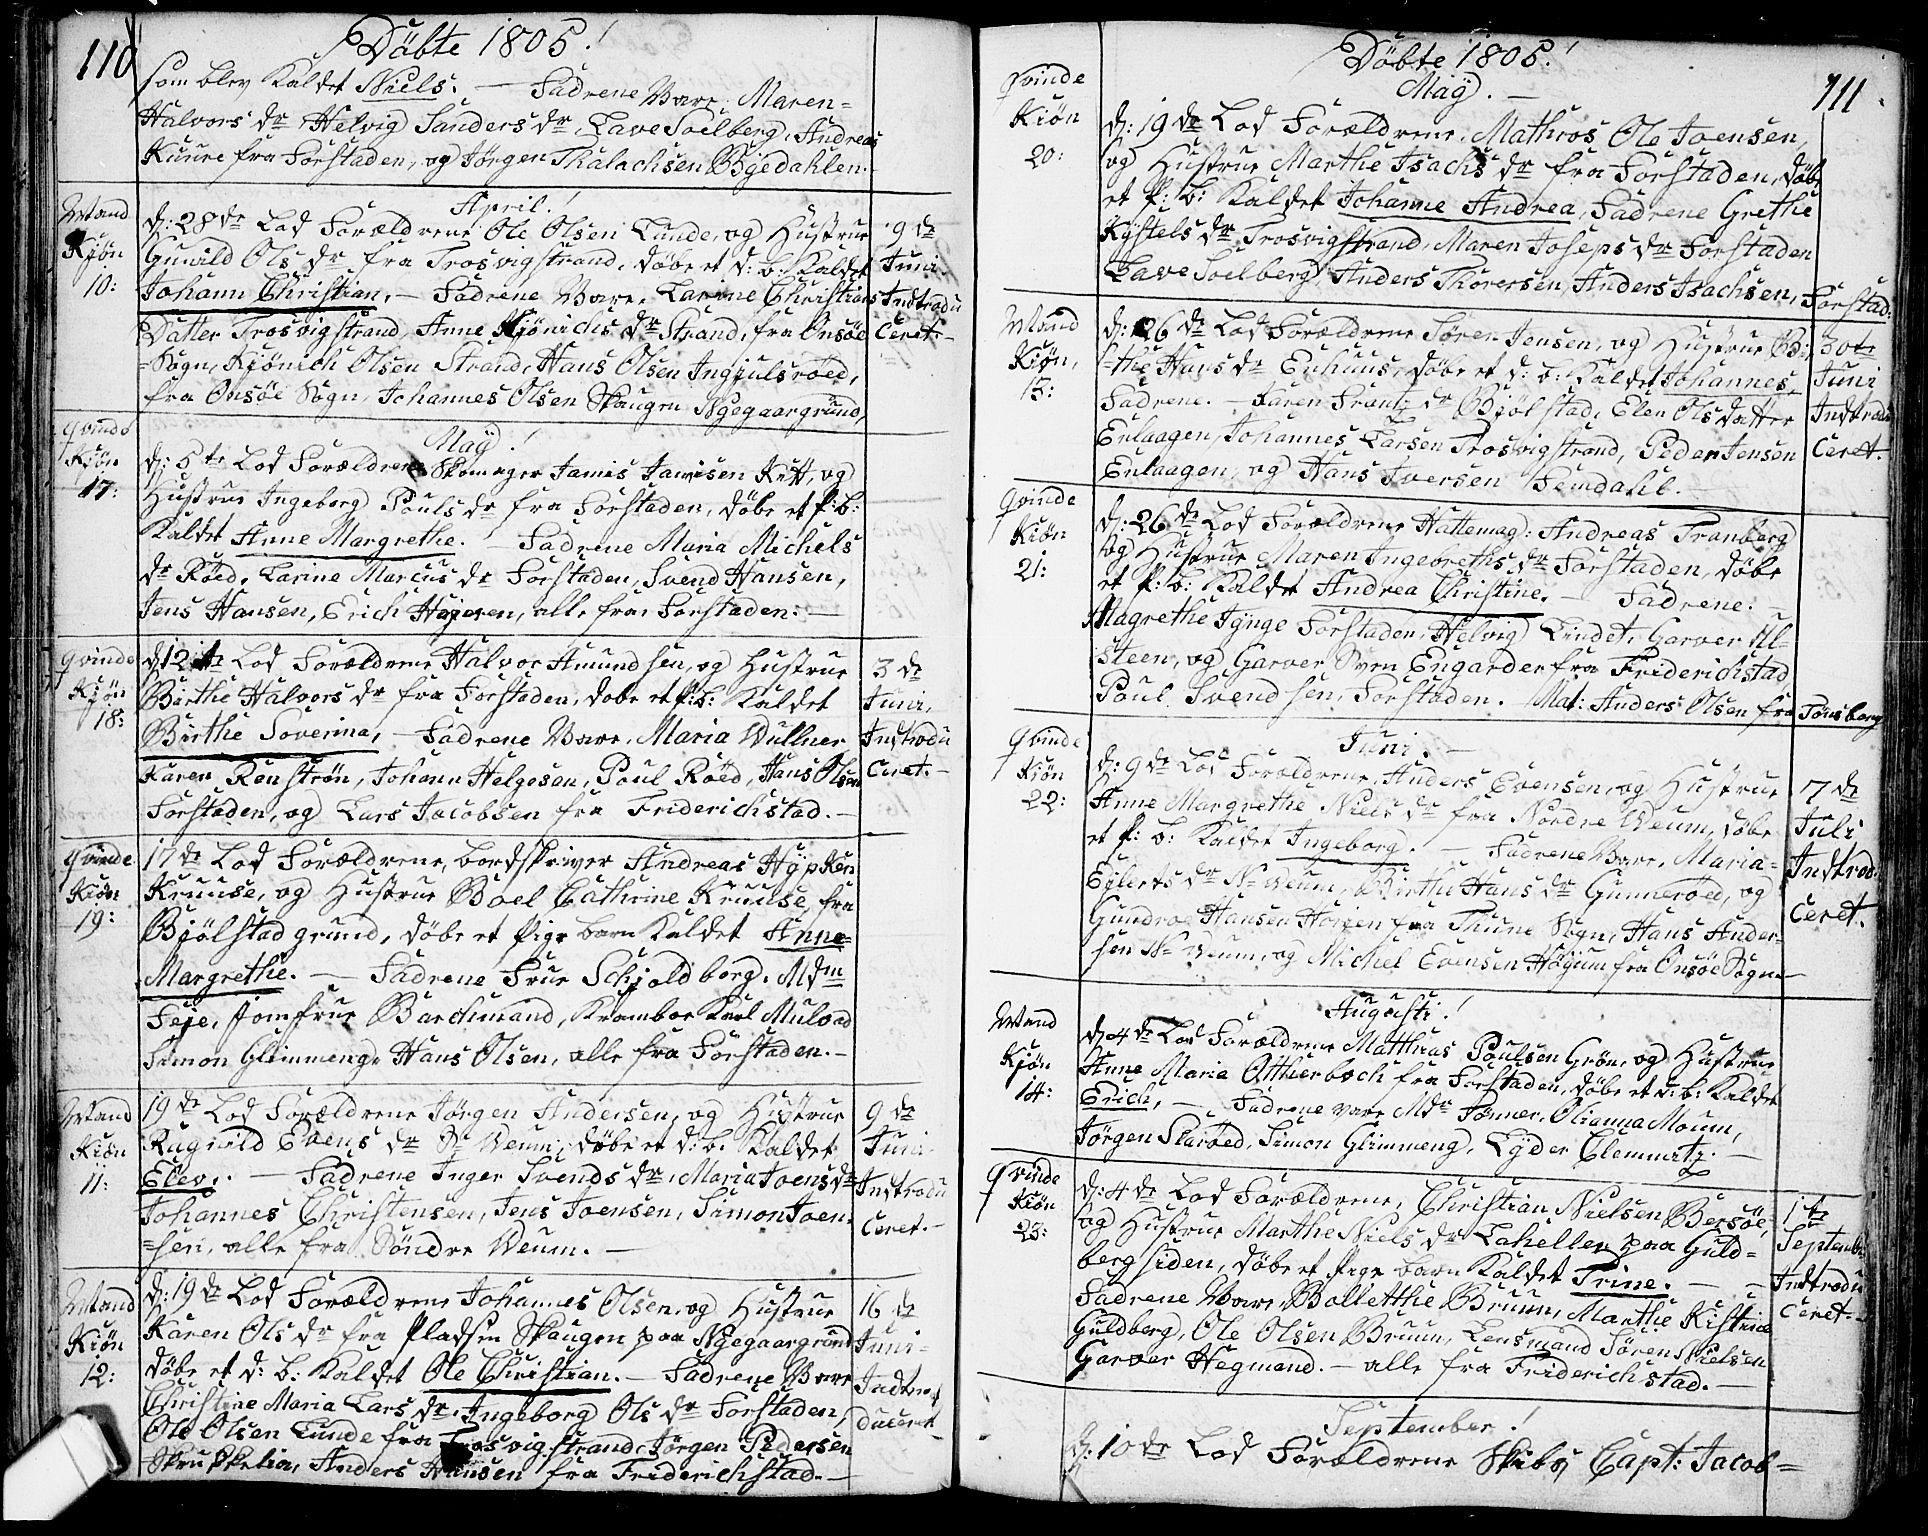 110
Döbte 1805!
som blev Kaldet Niels. — Fadrene Vare, Maren=
Halvors dr Helvig Sanders dr, Lave Soelberg, Andreas
Kuure fra Forstaden, og Jørgen Thalachsen Bÿedahlen.
April!
Mand
Kjön
10:
d: 28de Lod Forældrene Ole Olsen Lunde, og Hustrue
Gunild Ols dr fra Trosvigstrand, döbe et d: b: Kaldet
Johann Christian. — Fadrene Vare, Larine Christians
Datter Trosvigstrand, Anne Kjönichs dr Strand, fra Onsöe
=Sogn, Kjönich Olsen Strand, Hans Olsen Ingjulsröed,
fra Onsöe Sogn, Johannes Olsen Skaugen Nÿegaargrund,
9de
Juni
Indtrodu
Ceret. —
May!
Qvinde
Kiön
17:
d: 5te Lod Forældrene Skomager Jamis Jamisen Kett, og
Hustrue Ingeborg Pouls dr fra Forstaden, döbe et P: b:
Kaldet Anne Margrethe. — Fadrene Maria Michels
dr Röed, Larine Marcus dr Forstaden, Svend Hansen,
Jens Hansen, Erich Hajeren, alle fra Forstaden: —
Qvinde
Kjön
18:
d: 12te Lod Forældrene Halvor Amundsen, og Hustrue
Birthe Halvors dr fra Forstaden, döbe et P: b: Kaldet
Birthe Soverina, — Fadrene Vare, Maria Wullner
Karen Renström, Johann Helgesen, Poul Röed, Hans Olsen
Forstaden, og Lars Jacobsen fra Friderichstad. —
3de
Juni,
Indtrodu
Ceret. —
Qvinde
Kiön
19:
17de Lod Forældrene, bordskriver Andreas Hÿpken
Kruuse, og Hustrue Boel Cathrine Kruuse, fra
Bjölstad grund, döbe et Pige barn Kaldet Anne=
Margrethe. — Fadrene Frue Schjoldborg, Mdm
Feje, Jomfrue Bardmand, Kramboe Karl Mulvad
Simon Glimmeng, Hans Olsen, alle fra Forstaden. —
Mand
Kiön
11:
19de Lod Forældrene Jörgen Andersen, og Hustrue
Ragnild Evens dr Sr Veum, döbe et d: b: Kaldet
Elev. — Fadrene Inger Svends dr, Maria Joens dr
Johannes Christensen, Jens Joensen, Simon Joen=
=sen, alle fra Söndre Veum. —
9de
Juni
Indtrodu
Ceret. —
Mand
Kiön
12:
d: 19de Lod Forældrene Johannes Olsen, og Hustrue
Karen Ols dr fra Pladsen Skaugen paa Nÿegaargrund
döbe et d: b: Kaldet Ole Christian. — Fadrene Vare
Christine Maria Lars dr, Ingeborg Ols dr Forstaden,
Ole Olsen Lunde fra Trosvigstrand, Jörgen Pedersen
Skruppelia, Anders Hansen fra Friderichstad. —
16de
Juni —
Indtro
duceret
111
Döbte 1805!
May. —
Qvinde
Kiön
20:
d: 19de Lod Forældrene, Mathros Ole Joensen,
og Hustrue Marthe Isachs dr fra Forstaden, döbe
et P: b: Kaldet Johanne Andrea, Fadrene Grethe
Kÿstels dr Trosvigstrand, Maren Joseps dr Forstaden
Lave Soelberg, Anders Thorersen, Anders Isachsen, Forstad:
Mand
Kiön,
13:
d: 26de Lod Forældrene Sören Jensen, og Hustrue Bi=
=the Hans dr Enhuus, döbe et d: b: Kaldet Johannes,
Fadrene. — Karen Frantz dr Bjölstad, Elen Olsdatter
Enlaagen, Johannes Larsen Trosvigstrand, Peder Jensen
Enlaagen, og Hans Iversen Femdahl.
30te
Juni
Indtrodu
Ceret.
Qvinde
Kiön
21:
d: 26de Lod Forældrene Hattemag: Andreas Tranberg
og Hustrue Maren Ingebreths dr Forstaden, döbe
et P: b: Kaldet Andrea Christine. — Fadrene. —
Magrethe Tÿnge Forstaden, Helvig Lindet, Garver Al=
=steen, og Garver Sven Engarder fra Friderichstad
Poul Svendsen, Forstaden. Mat: Anders Olsen fra Tönsberg
Juni. —
Qvinde
Kiön
22:
d: 9de Lod Forældrene, Anders Evensen, og Hustrue
Anne Margrethe Niels dr fra Nordre Veum, döbe
et P: b: Kaldet Ingeborg. — Fadrene Vare, Maria=
Eÿlerts dr Nr Veum, Birthe Hans dr Gunneröed, og
Gundroe Hansen Horjen fra Thune Sogn, Hans Ander=
sen Nr Veum, og Michel Evensen Högum fra Onsöe Sogn —
7de
Juli
Indtrod:
Ceret.
Augusti!
Mand
Kjön
14:
d: 4de Lod Forældrene Matthias Poulsen Grön, og Hustrue
Anne Maria Otterboch fra Forstaden, döbe et d: b: Kaldet
Erich, — Fadrene vare Mdr Tonner, Olianna Moum,
Jörgen Slaröed, Simon Glimmeng, Lÿder Clemmetz. —
Qvinde
Kiön
23:
d: 4de Lod Forældrene, Christian Nielsen Bersöe,
og Hustrue Marthe Niels dr Lahellen paa Guld=
bergsiden, döbe et Pige barn Kaldet Trine. — —
Fadrene Vare, Bolletthe Bruun, Marthe Kistine
Guldberg, Ole Olsen Bruun, Lensmand Sören Nielsen
Garver Hegmand. — alle fra Friderichstad. —
1te
Septembr
Indtrodu
Ceret. —
September!
d: 10de Lod Forældrene Skibs Capt: Jacob=